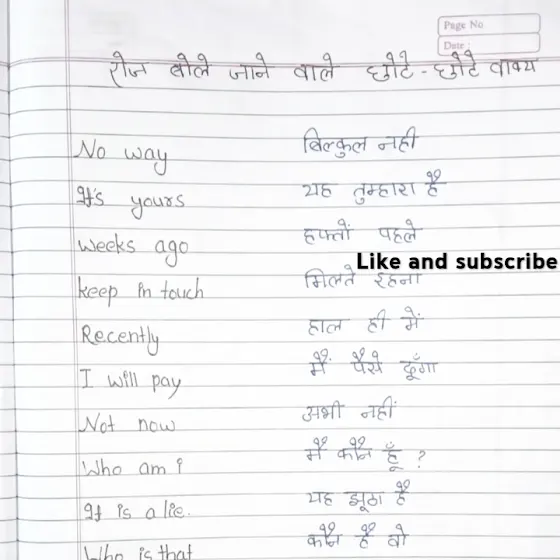 Page No
Date :
रोज बोले जाने वाले छोटे - छोटे वाक्य
No way बिल्कुल नही
It's yours यह तुम्हारा है
weeks ago हफ्तों पहले
Like and subscribe
keep in touch मिलते रहना
Recently हाल ही में
I will pay मैं पैसे दूँगा
Not now अभी नहीं
Who am i मैं कौन हूँ ?
It is a lie. यह झूठा है
Who is that कौन है वो